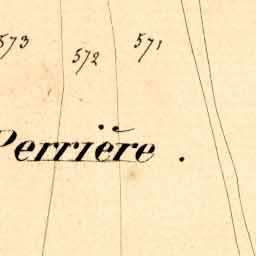 573
572
571
Perrière.